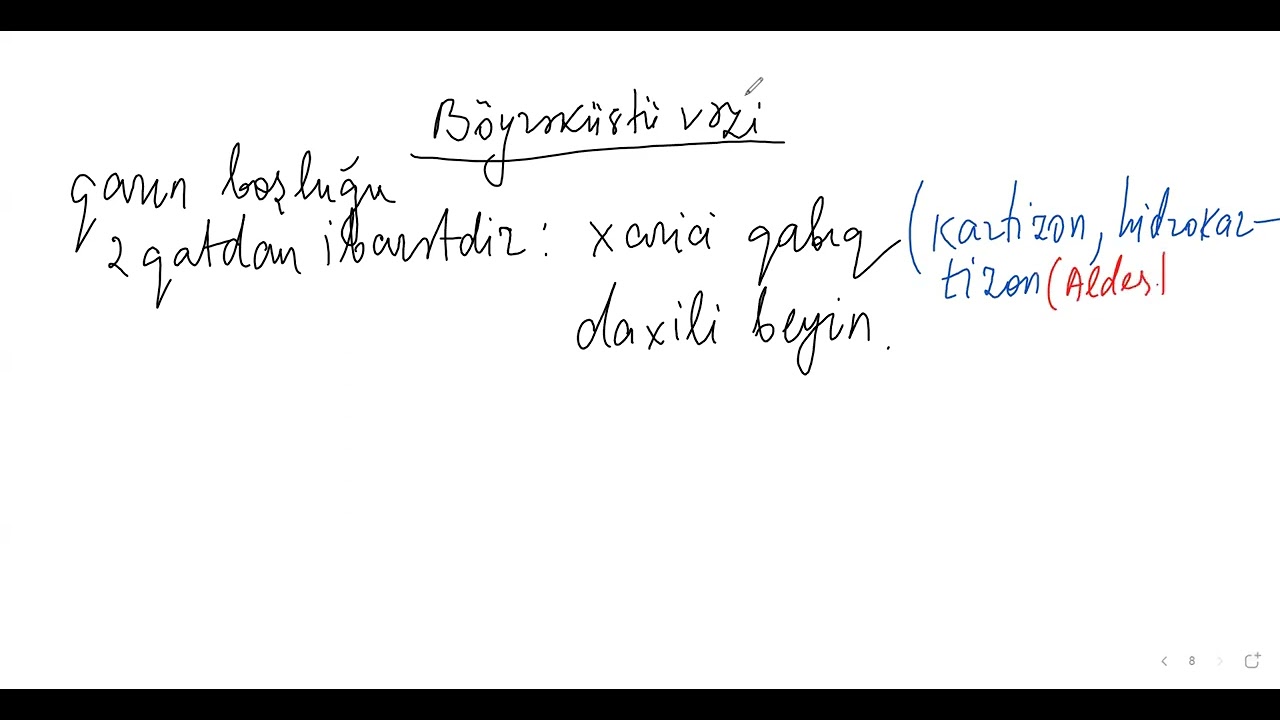 Böyrəküstü vəzi
qarın boşluğu
2 qatdan ibarətdir: xarici qabıq (kartizon, hidrokar-
tizon (Aldes.
daxili beyin.
8